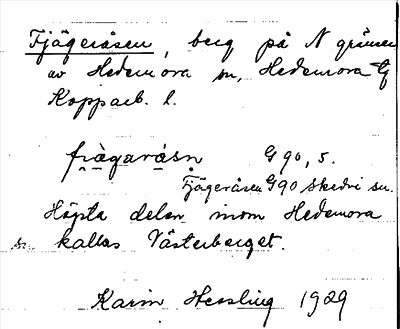 Fjägeråsen, berg på N gränsen
av Hedemora sn, Hedemora
Kopparb. l.
fiägaråsn G 90, 5.
Fjägeråsen G 90 Skedvi sn.
Högsta delen inom Hedemora
sn kallas Västerberget.
Karin Hessling 1929